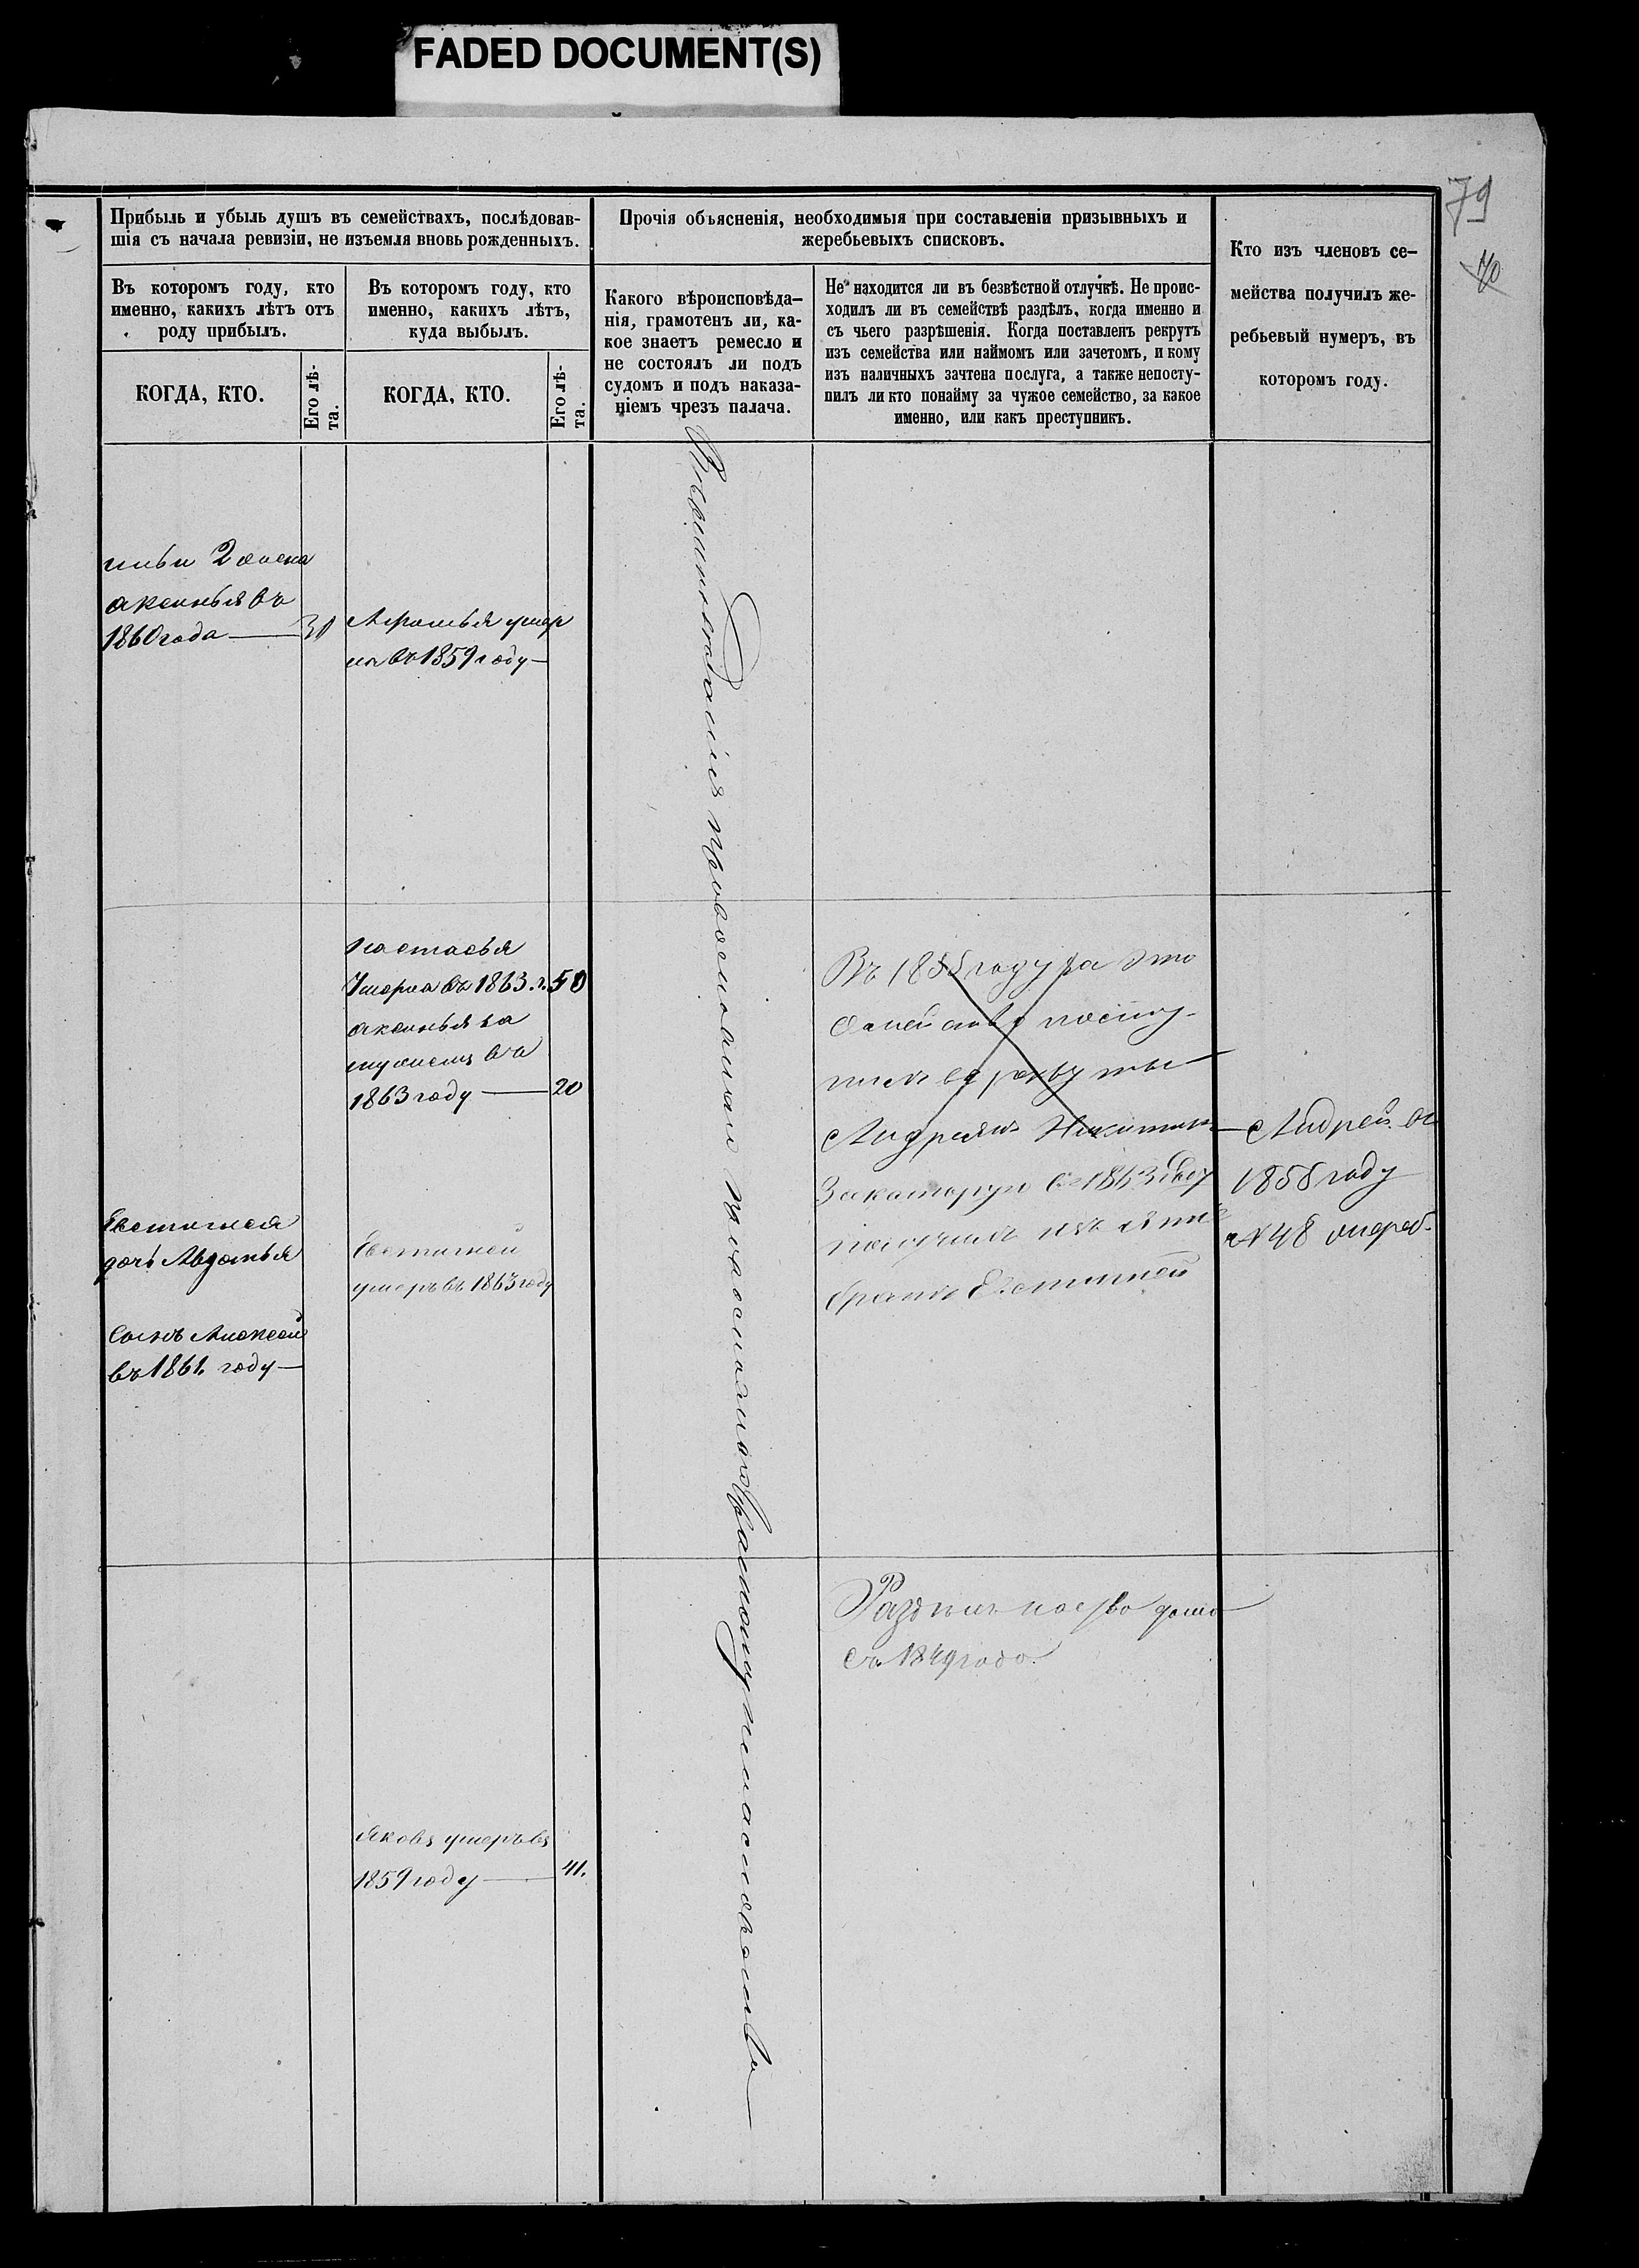 FADED DOCUMENT(S)
79
70
Прибыль и убыль душъ въ семействахъ, послѣдовав-
шія съ начала ревизіи, не изъемля вновь рожденныхъ.
Въ которомъ году, кто
именно, какихъ лѣтъ отъ
роду прибылъ.
КОГДА, КТО.
Его лѣ-
та.
Въ которомъ году, кто
именно, какихъ лѣтъ,
куда выбылъ.
КОГДА, КТО.
Его лѣ-
та.
Прочія объясненія, необходимыя при составленіи призывныхъ и
жеребьевыхъ списковъ.
Какого вѣроисповѣда-
нія, грамотенъ ли, ка-
кое знаетъ ремесло и
не состоялъ ли подъ
судомъ и подъ наказа-
ніемъ чрезъ палача.
Не находится ли въ безвѣстной отлучкѣ. Не проис-
ходилъ ли въ семействѣ раздѣлъ, когда именно и
съ чьего разрѣшенія. Когда поставленъ рекрутъ
изъ семейства или наймомъ или зачетомъ, и кому
изъ наличныхъ зачтена послуга, а также непосту-
пилъ ли кто понайму за чужое семейство, за какое
именно, или какъ преступникъ.
Кто изъ членовъ се-
мейства получилъ же-
ребьевый нумеръ, въ
которомъ году.
2 жена
аксинья въ
1860 года — 30
умер
ла въ 1859 году —
настасья
Умерла въ 1863. г. 50
аксинья за
мужемъ въ
1863 году — 20
Евстигнея
дочь Авдотья
Сынъ Алексей
въ 1861. году —
Евстигней
умеръ въ 1863 году
Яковъ умеръ въ
1859 году — 41.
Вероисповедания православнаго
Въ 1855 году за это
семейство посту-
пилъ въ рекруты
Андреянъ Никитинъ
Закоторую въ 1863 году
братъ Евстигней
Андрей въ
1858 году
№ 48 жереб.
съ 1849 года.